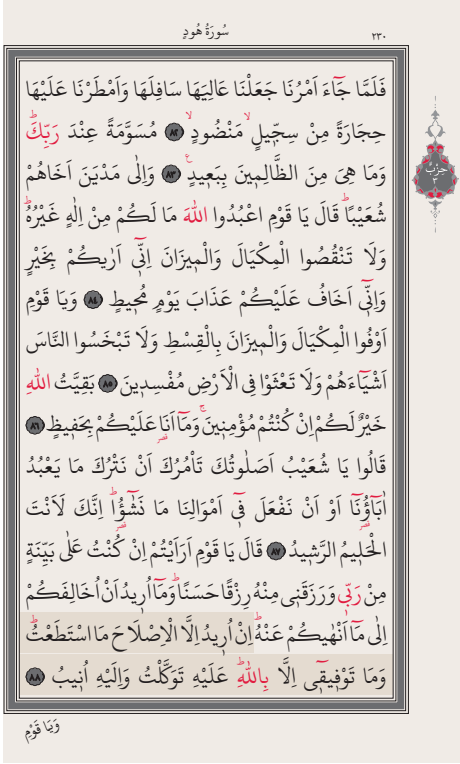 سُورَةُ هُودٍ
٢٣٠
فَلَمَّا جَٓاءَ اَمْرُنَا جَعَلْنَا عَالِيَهَا سَافِلَهَا وَاَمْطَرْنَا عَلَيْهَا
حِجَارَةً مِنْ سِجّ۪يلٍۙ مَنْضُودٍۙ ﴿٨٢﴾ مُسَوَّمَةً عِنْدَ رَبِّكَۜ
وَمَا هِيَ مِنَ الظَّالِم۪ينَ بِبَع۪يدٍ۟ ﴿٨٣﴾ وَاِلٰى مَدْيَنَ اَخَاهُمْ
شُعَيْبًاۜ قَالَ يَا قَوْمِ اعْبُدُوا اللّٰهَ مَا لَكُمْ مِنْ اِلٰهٍ غَيْرُهُۜ
وَلَا تَنْقُصُوا الْمِكْيَالَ وَالْم۪يزَانَ اِنّ۪ٓي اَرٰيكُمْ بِخَيْرٍ
وَاِنّ۪ٓي اَخَافُ عَلَيْكُمْ عَذَابَ يَوْمٍ مُح۪يطٍ ﴿٨٤﴾ وَيَا قَوْمِ
اَوْفُوا الْمِكْيَالَ وَالْم۪يزَانَ بِالْقِسْطِ وَلَا تَبْخَسُوا النَّاسَ
اَشْيَٓاءَهُمْ وَلَا تَعْثَوْا فِي الْاَرْضِ مُفْسِد۪ينَ ﴿٨٥﴾ بَقِيَّتُ اللّٰهِ
خَيْرٌ لَكُمْ اِنْ كُنْتُمْ مُؤْمِن۪ينَۚ وَمَٓا اَنَا۬ عَلَيْكُمْ بِحَف۪يظٍ ﴿٨٦﴾
قَالُوا يَا شُعَيْبُ اَصَلٰوتُكَ تَأْمُرُكَ اَنْ نَتْرُكَ مَا يَعْبُدُ
اٰبَٓاؤُ۬نَٓا اَوْ اَنْ نَفْعَلَ ف۪ٓي اَمْوَالِنَا مَا نَشٰٓؤُ۬اۜ اِنَّكَ لَاَنْتَ
الْحَل۪يمُ الرَّش۪يدُ ﴿٨٧﴾ قَالَ يَا قَوْمِ اَرَاَيْتُمْ اِنْ كُنْتُ عَلٰى بَيِّنَةٍ
مِنْ رَبّ۪ي وَرَزَقَن۪ي مِنْهُ رِزْقًا حَسَنًاۜ وَمَٓا اُر۪يدُ اَنْ اُخَالِفَكُمْ
اِلٰى مَٓا اَنْهٰيكُمْ عَنْهُۜ اِنْ اُر۪يدُ اِلَّا الْاِصْلَاحَ مَا اسْتَطَعْتُۜ
وَمَا تَوْف۪يق۪ٓي اِلَّا بِاللّٰهِۜ عَلَيْهِ تَوَكَّلْتُ وَاِلَيْهِ اُن۪يبُ ﴿٨٨﴾
حزب
وَيَا قَوْمِ